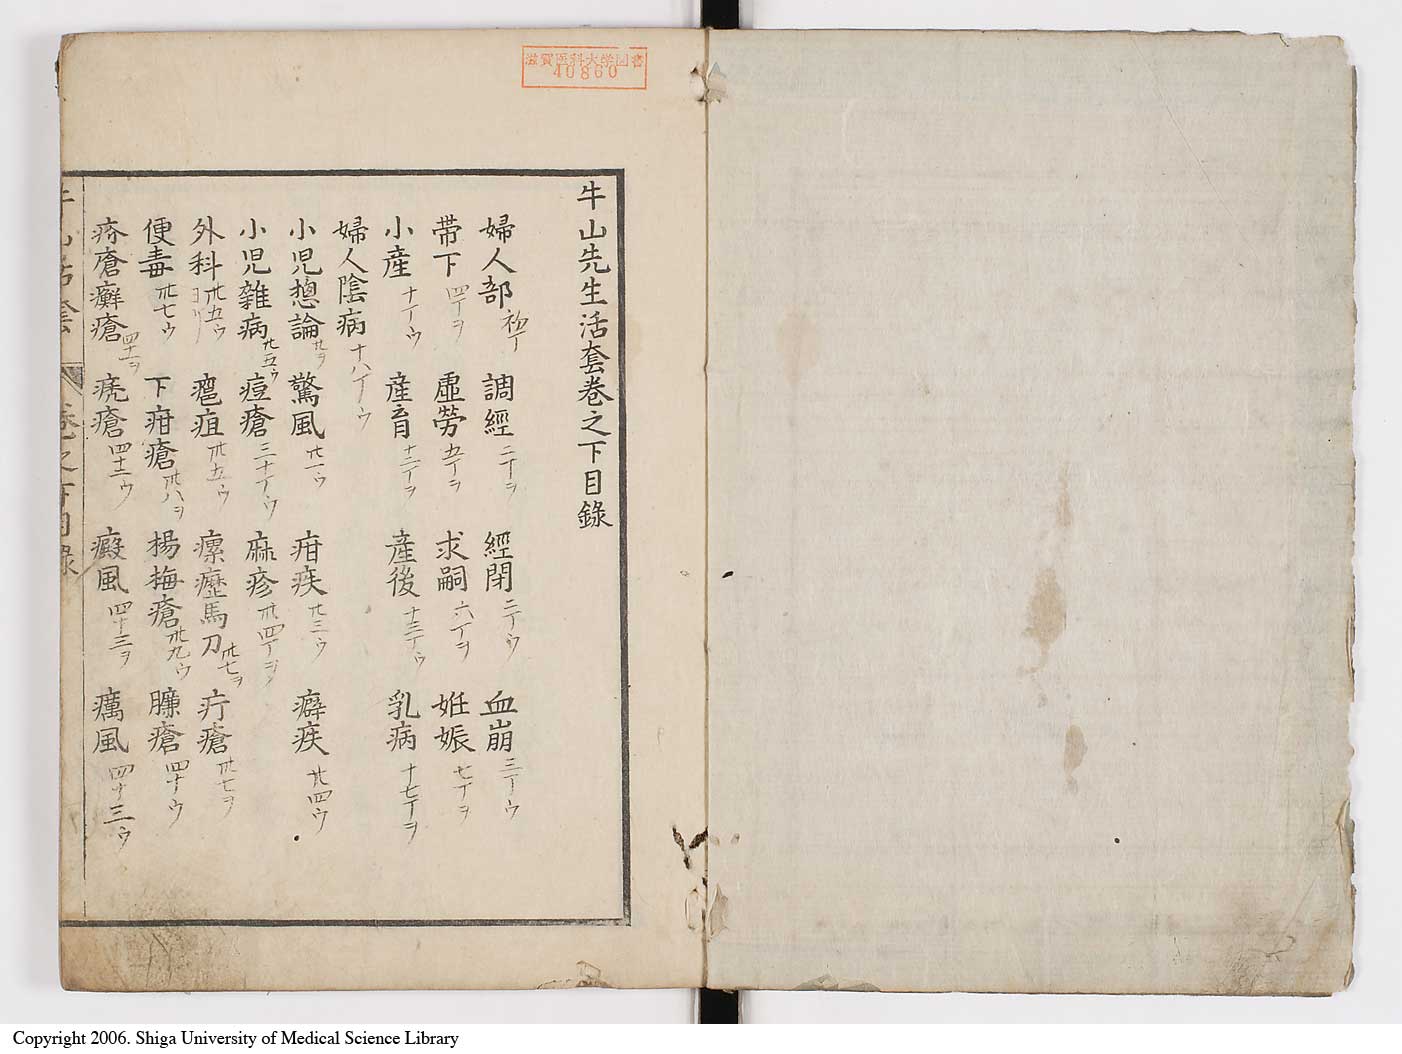 滋賀医科大学図書
40860
牛山先生活套巻之下目録
婦人部 初丁 調經 二丁ヲ 經閉 二丁ウ 血崩 三丁ウ
帯下 四丁ヲ 虚勞 五丁ヲ 求嗣 六丁ヲ 妊娠 七丁ヲ
小産 十丁ウ 産育 十二丁ヲ 産後 十三丁ウ 乳病 十七丁ヲ
婦人陰病 十八丁ウ
小児揔論 廾ヲ 驚風 廾一ウ 疳疾 廾三ウ 癖疾 廾四ウ
小児雜病 廾五ウ 痘瘡 三十丁ウ 麻疹 丗四丁ヲ
外科 丗五ウ 癰疽 丗五ウ 瘰癧馬刀 丗七ヲ 疔瘡 丗七ヲ
便毒 丗七ウ 下疳瘡 丗八ヲ 楊梅瘡 丗九ウ 臁瘡 四十ウ
疥瘡癬瘡 四十一ヲ 禿瘡 四十二ウ 癜風 四十三ヲ 癘風 四十三ウ
牛山活套 巻之下目録
Copyright 2006. Shiga University of Medical Science Library